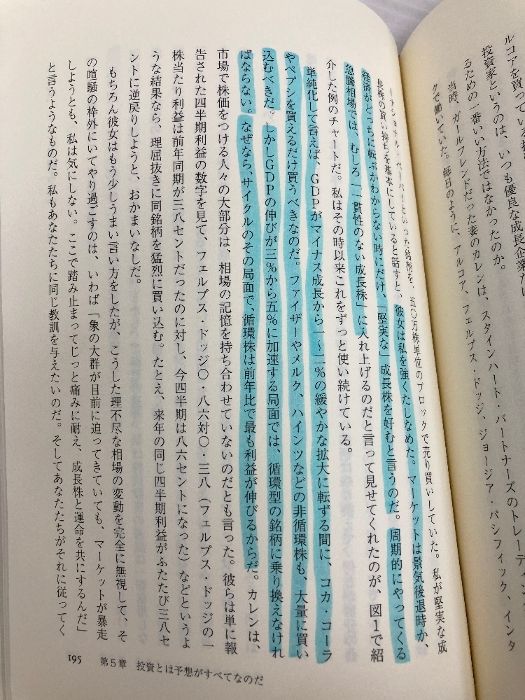 ルコアを買ってい
投資家というのは、いつも優良な成長企業だい
るための一番いい方法ではなかったのか。
当時、ガールフレンドだった妻のカレンは、スタインハート・パートナーズのトレーデ
ングをしていた。毎日のように、アルコア、フェルプス・ドッジ、ジョージア・パシフィック、インタ
五〇万株単位のブロックで売り買いしていた。私が堅実な成
長株の買い持ちを基本にしていると話すと、彼女は私を強くたしなめた。マーケットは景気後退時か、
経済がどっちに転ぶかわからない時にだけ、「堅実な」成長株を好むと言うのだ。周期的にやってくる
急騰相場では、むしろ「一貫性のない成長株」に入れ上げるのだと言って見せてくれたのが、図1で紹
介した例のチャートだ。私はその時以来これをずっと使い続けている。
単純化して言えば、GDPがマイナス成長から一～二%の緩やかな拡大に転ずる間に、コカ・コーラ
やペプシを買えるだけ買うべきなのだ。ファイザーやメルク、ハインツなどの非循環株も、大量に買い
込むべきだ。しかしGDPの伸びが三%から五%に加速する局面では、循環型の銘柄に乗り換えなけれ
ばならない。なぜなら、サイクルのその局面で、循環株は前年比で最も利益が伸びるからだ。カレンは、
市場で株価をつける人々の大部分は、相場の記憶を持ち合わせていないのだとも言った。彼らは単に報
告された四半期利益の数字を見て、フェルプス・ドッジ〇・八六対〇・三八（フェルプス・ドッジの一
株当たり利益は前年同期が三八セントだったのに対し、今四半期は八六セントになった）などというよ
うな結果なら、理屈抜きに同銘柄を猛烈に買い込む。たとえ、来年の同じ四半期利益がふたたび三八セ
ントに逆戻りしようと、おかまいなしだ。
もちろん彼女はもう少しうまい言い方をしたが、こうした理不尽な相場の変動を完全に無視して、そ
の喧騒の枠外にいてやり過ごすのは、いわば「象の大群が目前に迫ってきていても、マーケットが暴走
しようとも、私は気にしない。ここで踏み止まってじっと痛みに耐え、成長株と運命を共にするんだ」
と言うようなものだ。私もあなたたちに同じ教訓を与えたいのだ。そしてあなたたちがそれに従ってく
195 第5章 投資とは予想がすべてなのだ